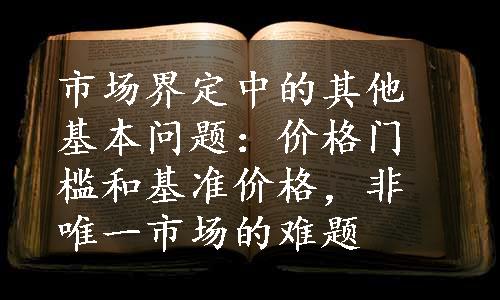 市场界定中的其他
基本问题：价格门
槛和基准价格，非
唯一市场的难题